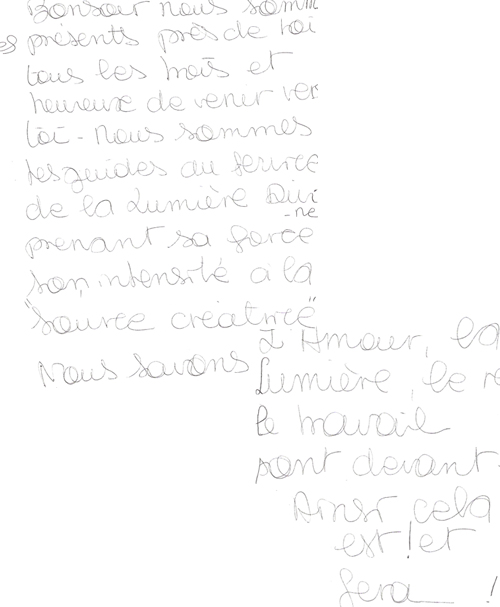 Bonsoir nous somm
es présents près de toi
tous les trois et
heureuse de venir ver
toi - Nous sommes
tes guides au service
de la Lumière Divi
-ne
prenant sa force
son intensité à la
"source créatrice"
Nous savons
L'Amour, la
Lumière, le
le travail
sont devant.
Ainsi cela
est! et
sera !